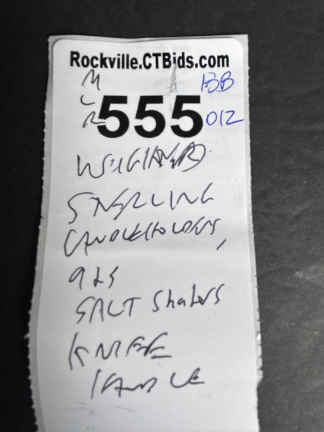 Rockville.CTBids.com
M BB
C
R 555 012
WEIGHTED
STERLING
CANDLEHOLDERS,
SALT Shakers
KNIFE
HANDLE